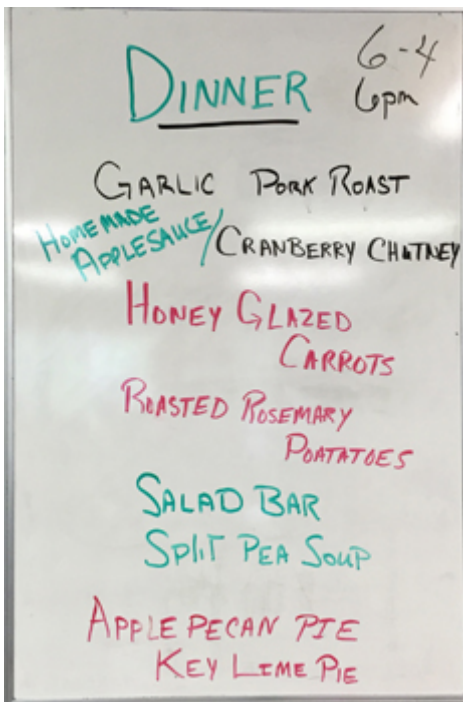 DINNER
6-4
6pm
GARLIC PORK ROAST
HOMEMADE
APPLESAUCE/
CRANBERRY CHUTNEY
HONEY GLAZED
CARROTS
ROASTED ROSEMARY
POATATOES
SALAD BAR
SPLIT PEA SOUP
APPLE PECAN PIE
KEY LIME PIE